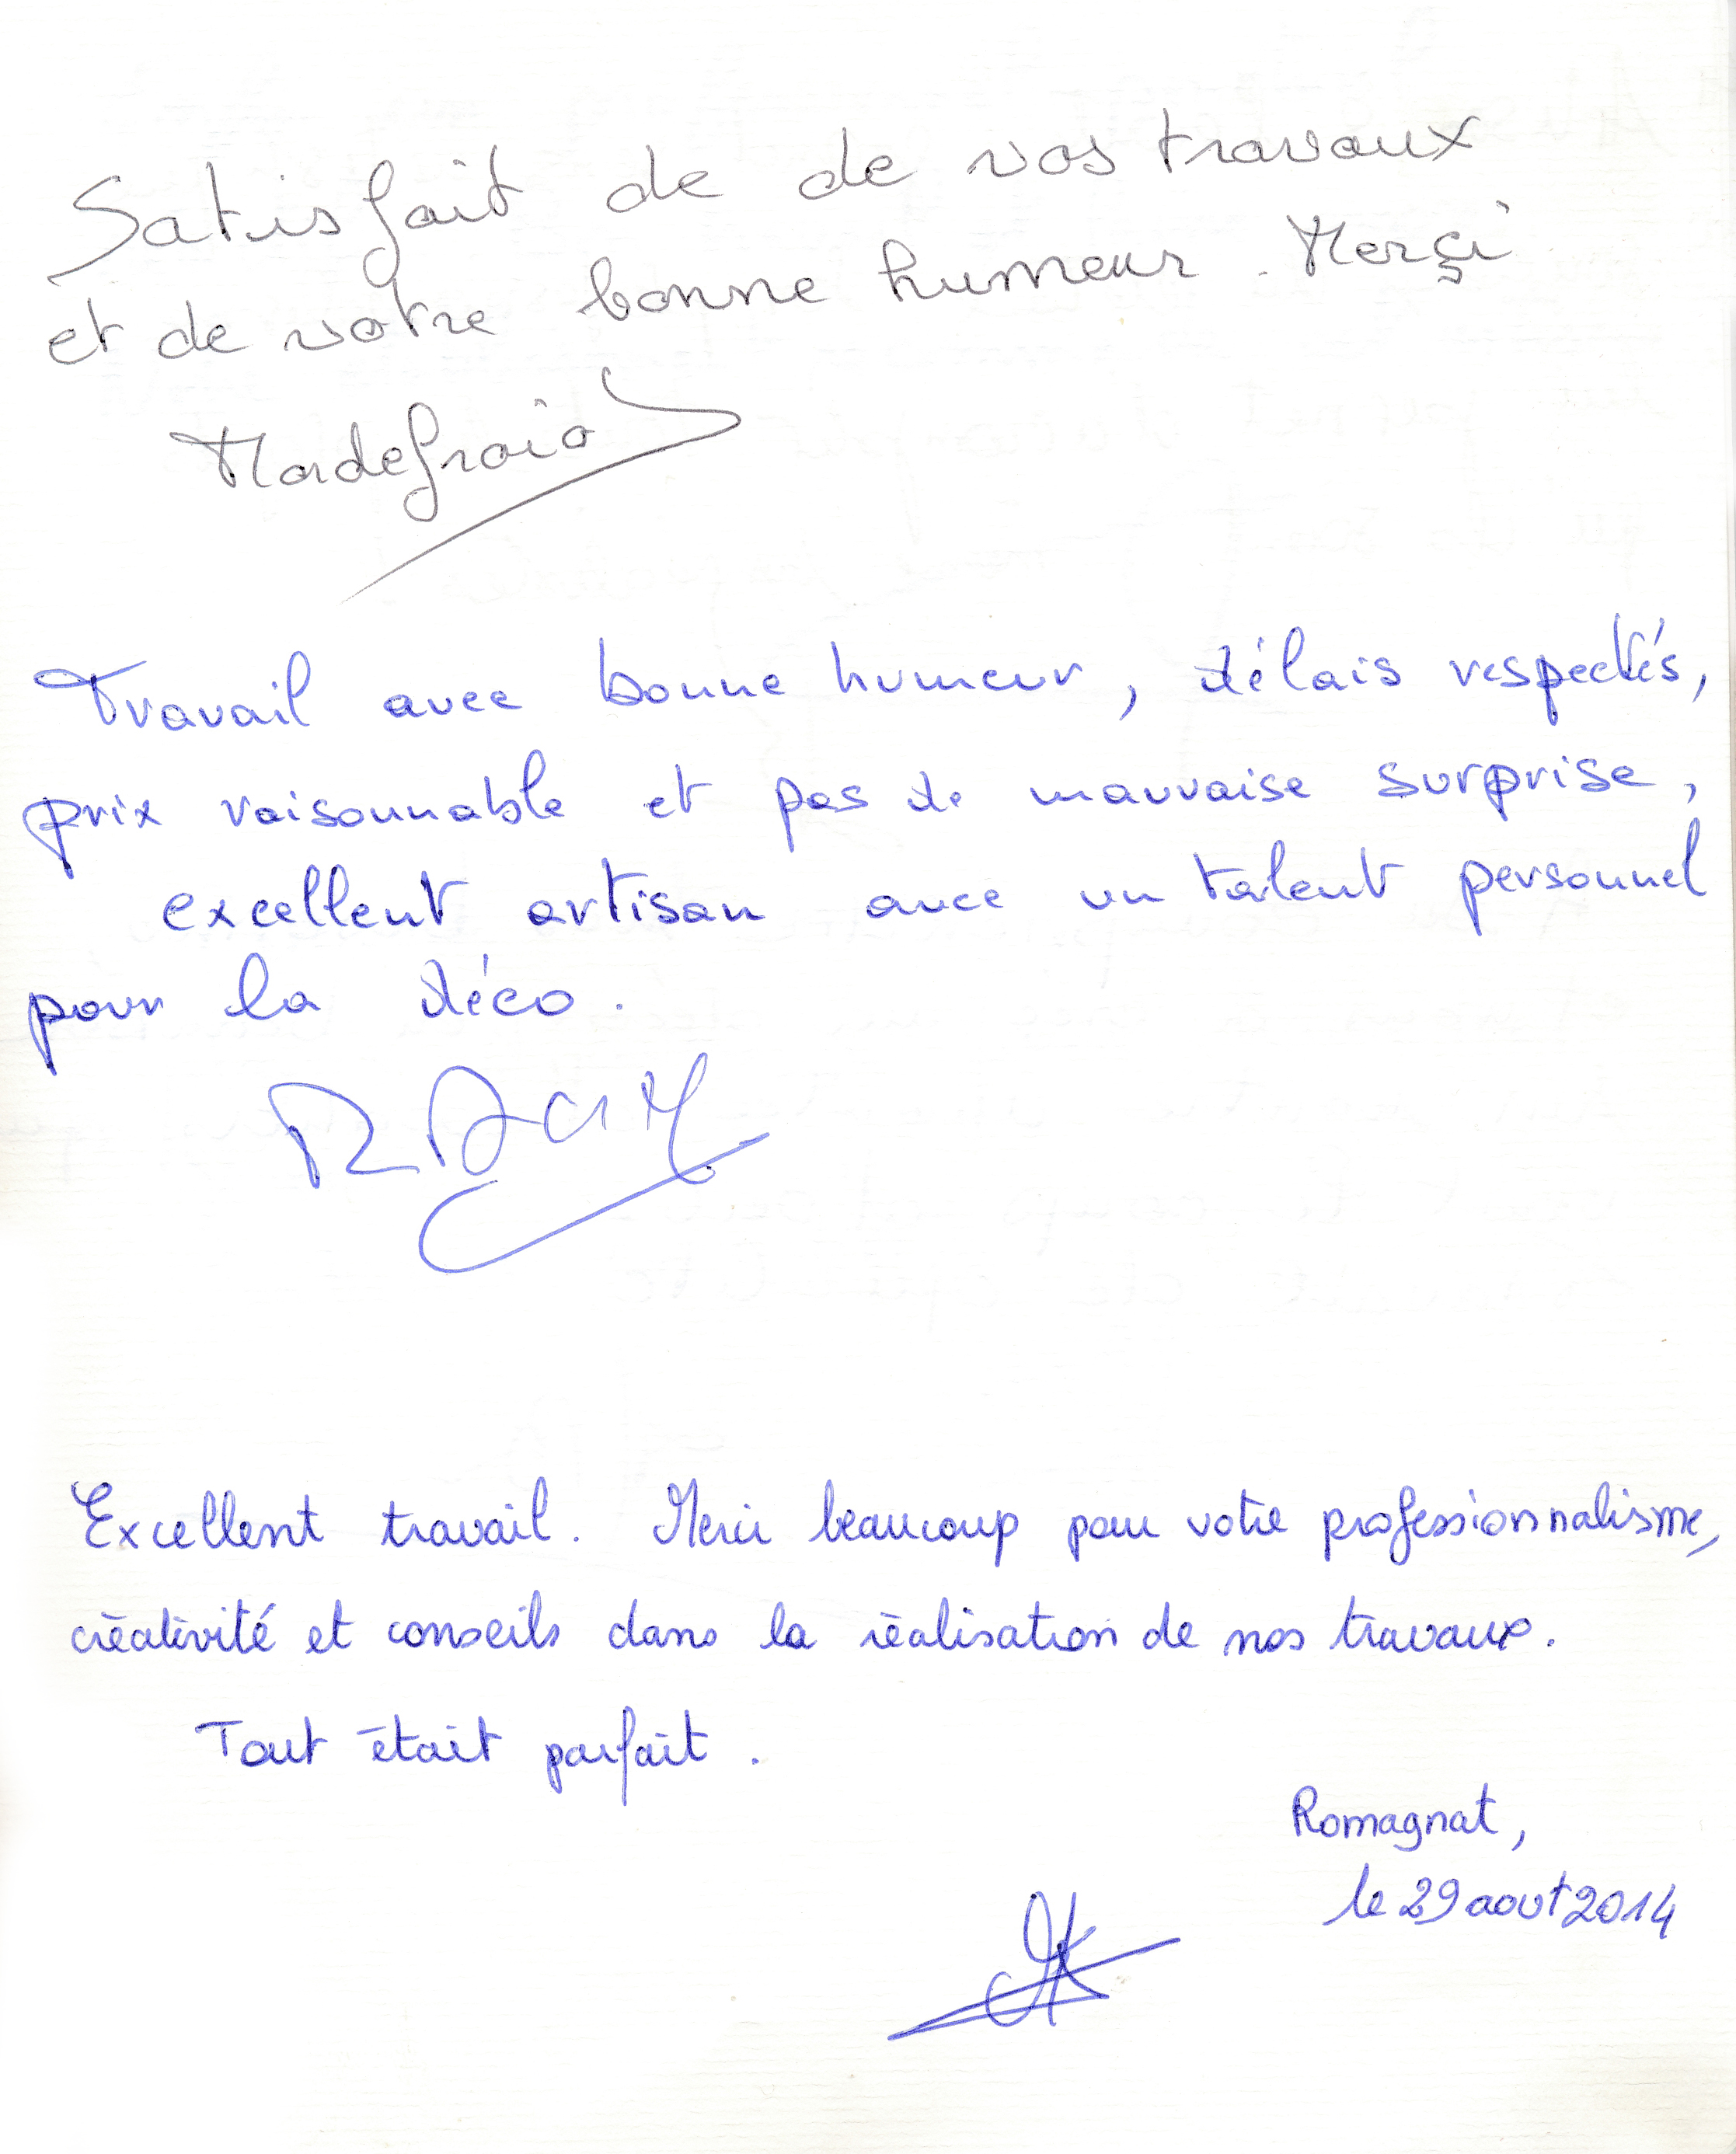 Satisfait de de vos travaux
et de votre bonne humeur. Merçi
Travail avec bonne humeur, délais respectés,
prix raisonnable et pas de mauvaise surprise,
excellent artisan avec un talent personnel
pour la déco.
Excellent travail. Merci beaucoup pour votre professionnalisme,
créativité et conseils dans la réalisation de nos travaux.
Tout était parfait.
Romagnat,
le 29 aout 2014